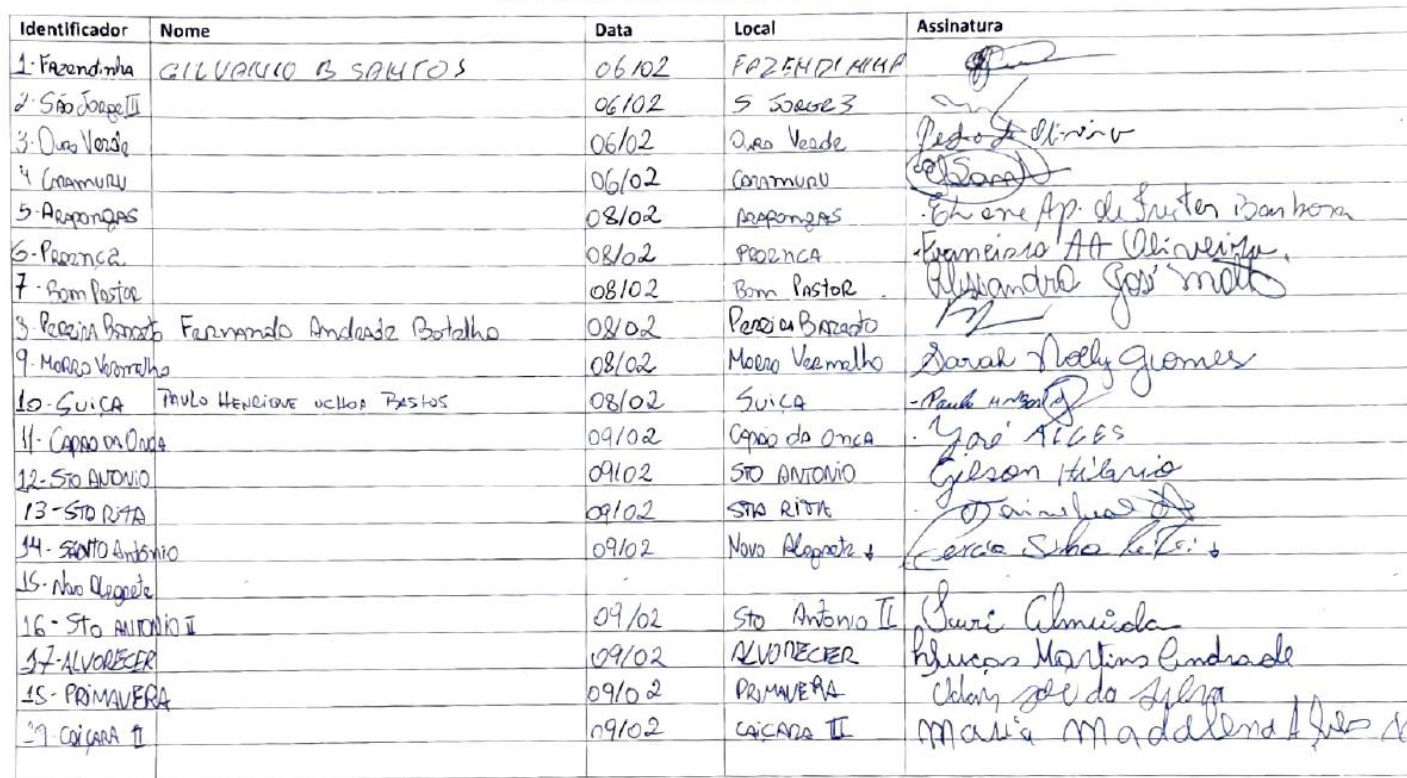 Identificador Nome Data Local Assinatura
1-Fazendinha GILVANIO B SANTOS 06/02 FAZENDINHA
2-São Jorge III 06/02 S JORGE 3
3-Ouro Verde 06/02 Ouro Verde Pedro
4 CARAMURU 06/02 CARAMURU
5-ARAPONGAS 08/02 ARAPONGAS Ap. de Barbosa
6-PROENÇA 08/02 PROENCA Francisco AA Oliveira.
7-Bom Pastor 08/02 Bom PASTOR Alessandra José
Pereira Barreto Fernando Andrade Botelho 08/02 Pereira Barreto
9-MORRO Vermelho 08/02 Morro Vermelho Sarah Nolly Gomes
10-SUIÇA PAULO HENRIQUE UCHOA BASTOS 08/02 SUIÇA Paulo
11-Capão da Onça 09/02 Capão da Onça José ALVES
12-STO ANTONIO 09/02 STO ANTONIO Gilson Hilario
13-STO RITA 09/02 STA RITA
14-SANTO Antônio 09/02 Novo Alegrete Silva
15-Novo Alegrete
16-STO ANTONIO II 09/02 Sto Antonio II Iuri Almeida
17-ALVORECER 09/02 ALVORECER Lucas Martins Andrade
18-PRIMAVERA 09/02 PRIMAVERA José da Silva
19-CAIÇARA II 09/02 CAIÇARA II Maria Maddalena